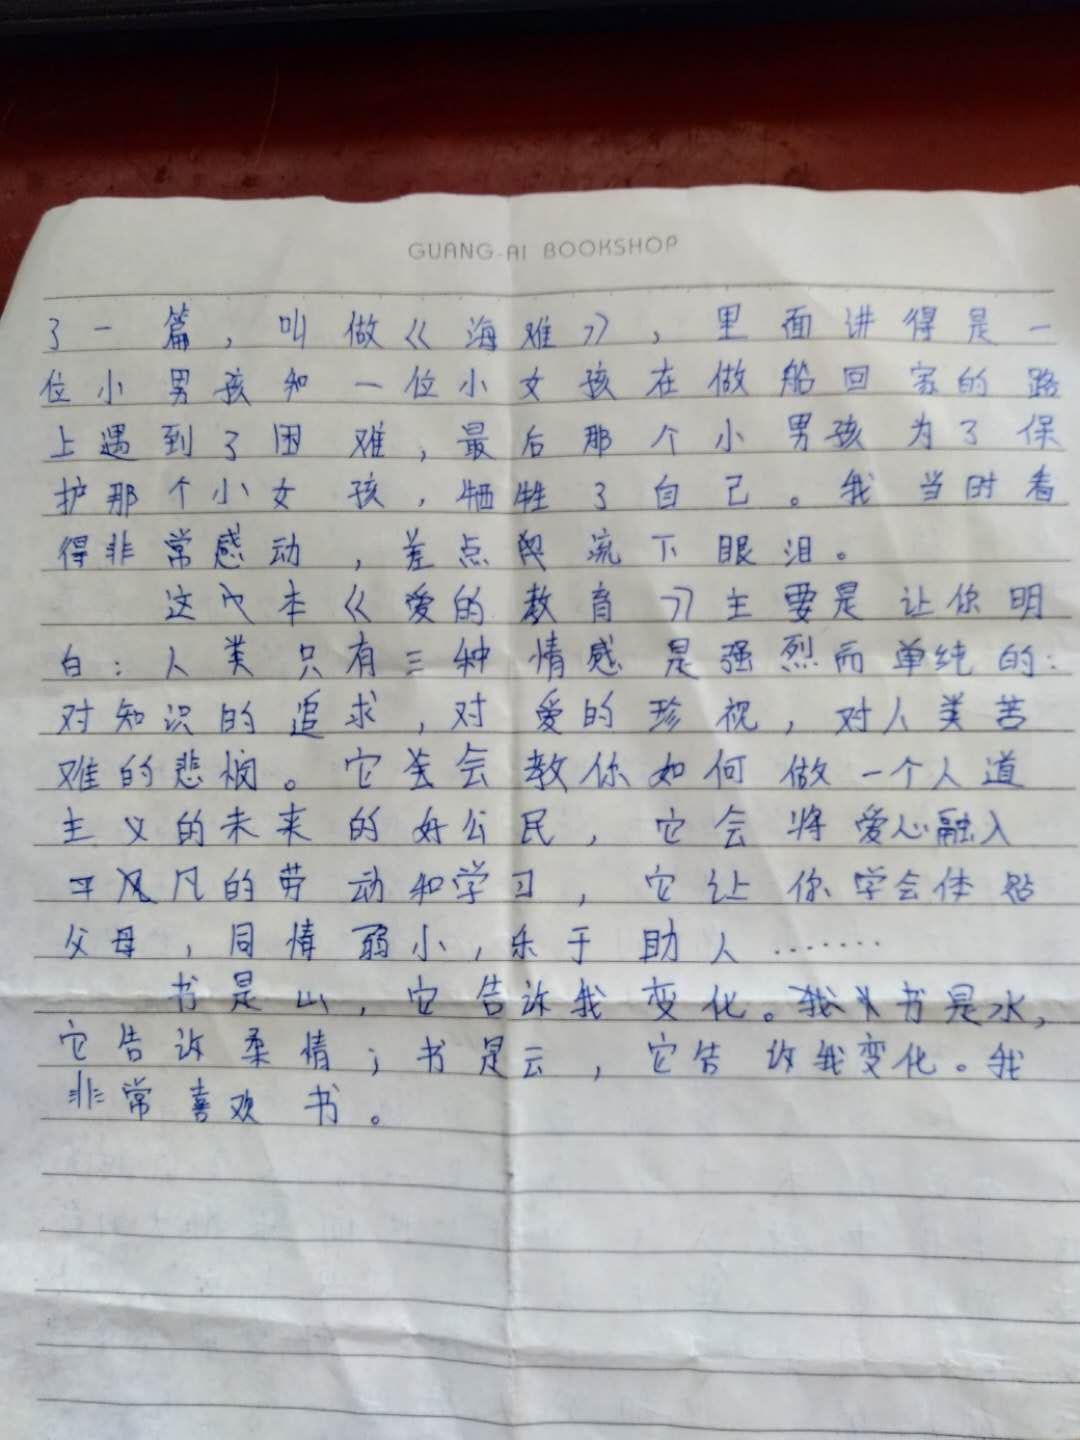 GUANG.AI BOOKSHOP
了一篇，叫做《海难》，里面讲得是一
位小男孩和一位小女孩在做船回家的路
上遇到了困难，最后那个小男孩为了保
护那个小女孩，牺牲了自己。我当时看
得非常感动，差点流下眼泪。
这本《爱的教育》主要是让你明
白：人类只有三种情感是强烈而单纯的：
对知识的追求，对爱的珍视，对人类苦
难的悲悯。它会教你如何做一个人道
主义的未来的好公民，它会将爱心融入
平凡的劳动和学习，它让你学会体贴
父母，同情弱小，乐于助人.......
书是山，它告诉我变化。书是水，
它告诉柔情；书是云，它告诉我变化。我
非常喜欢书。